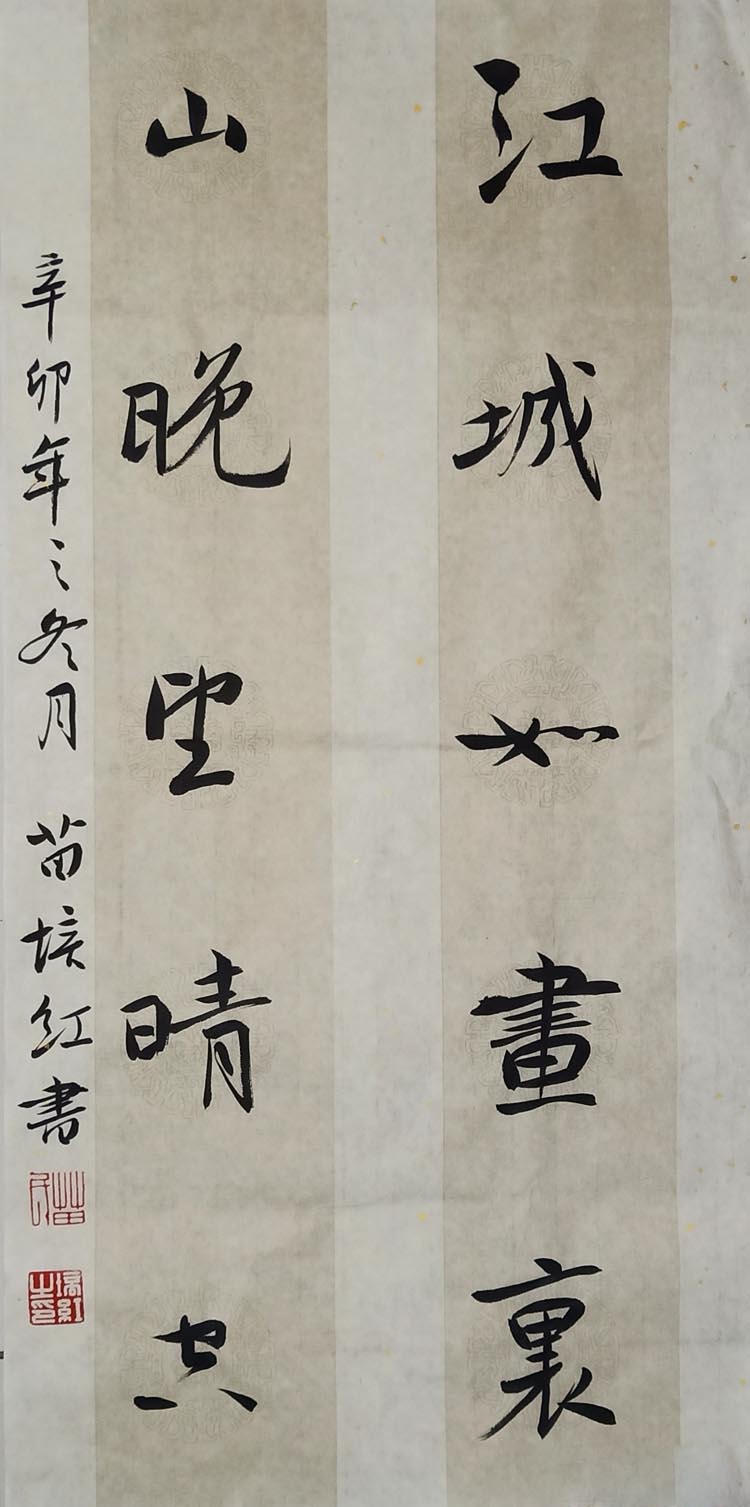 江城如畫裏
山晚望晴空
辛卯年之冬月 苗培红書
培紅之印